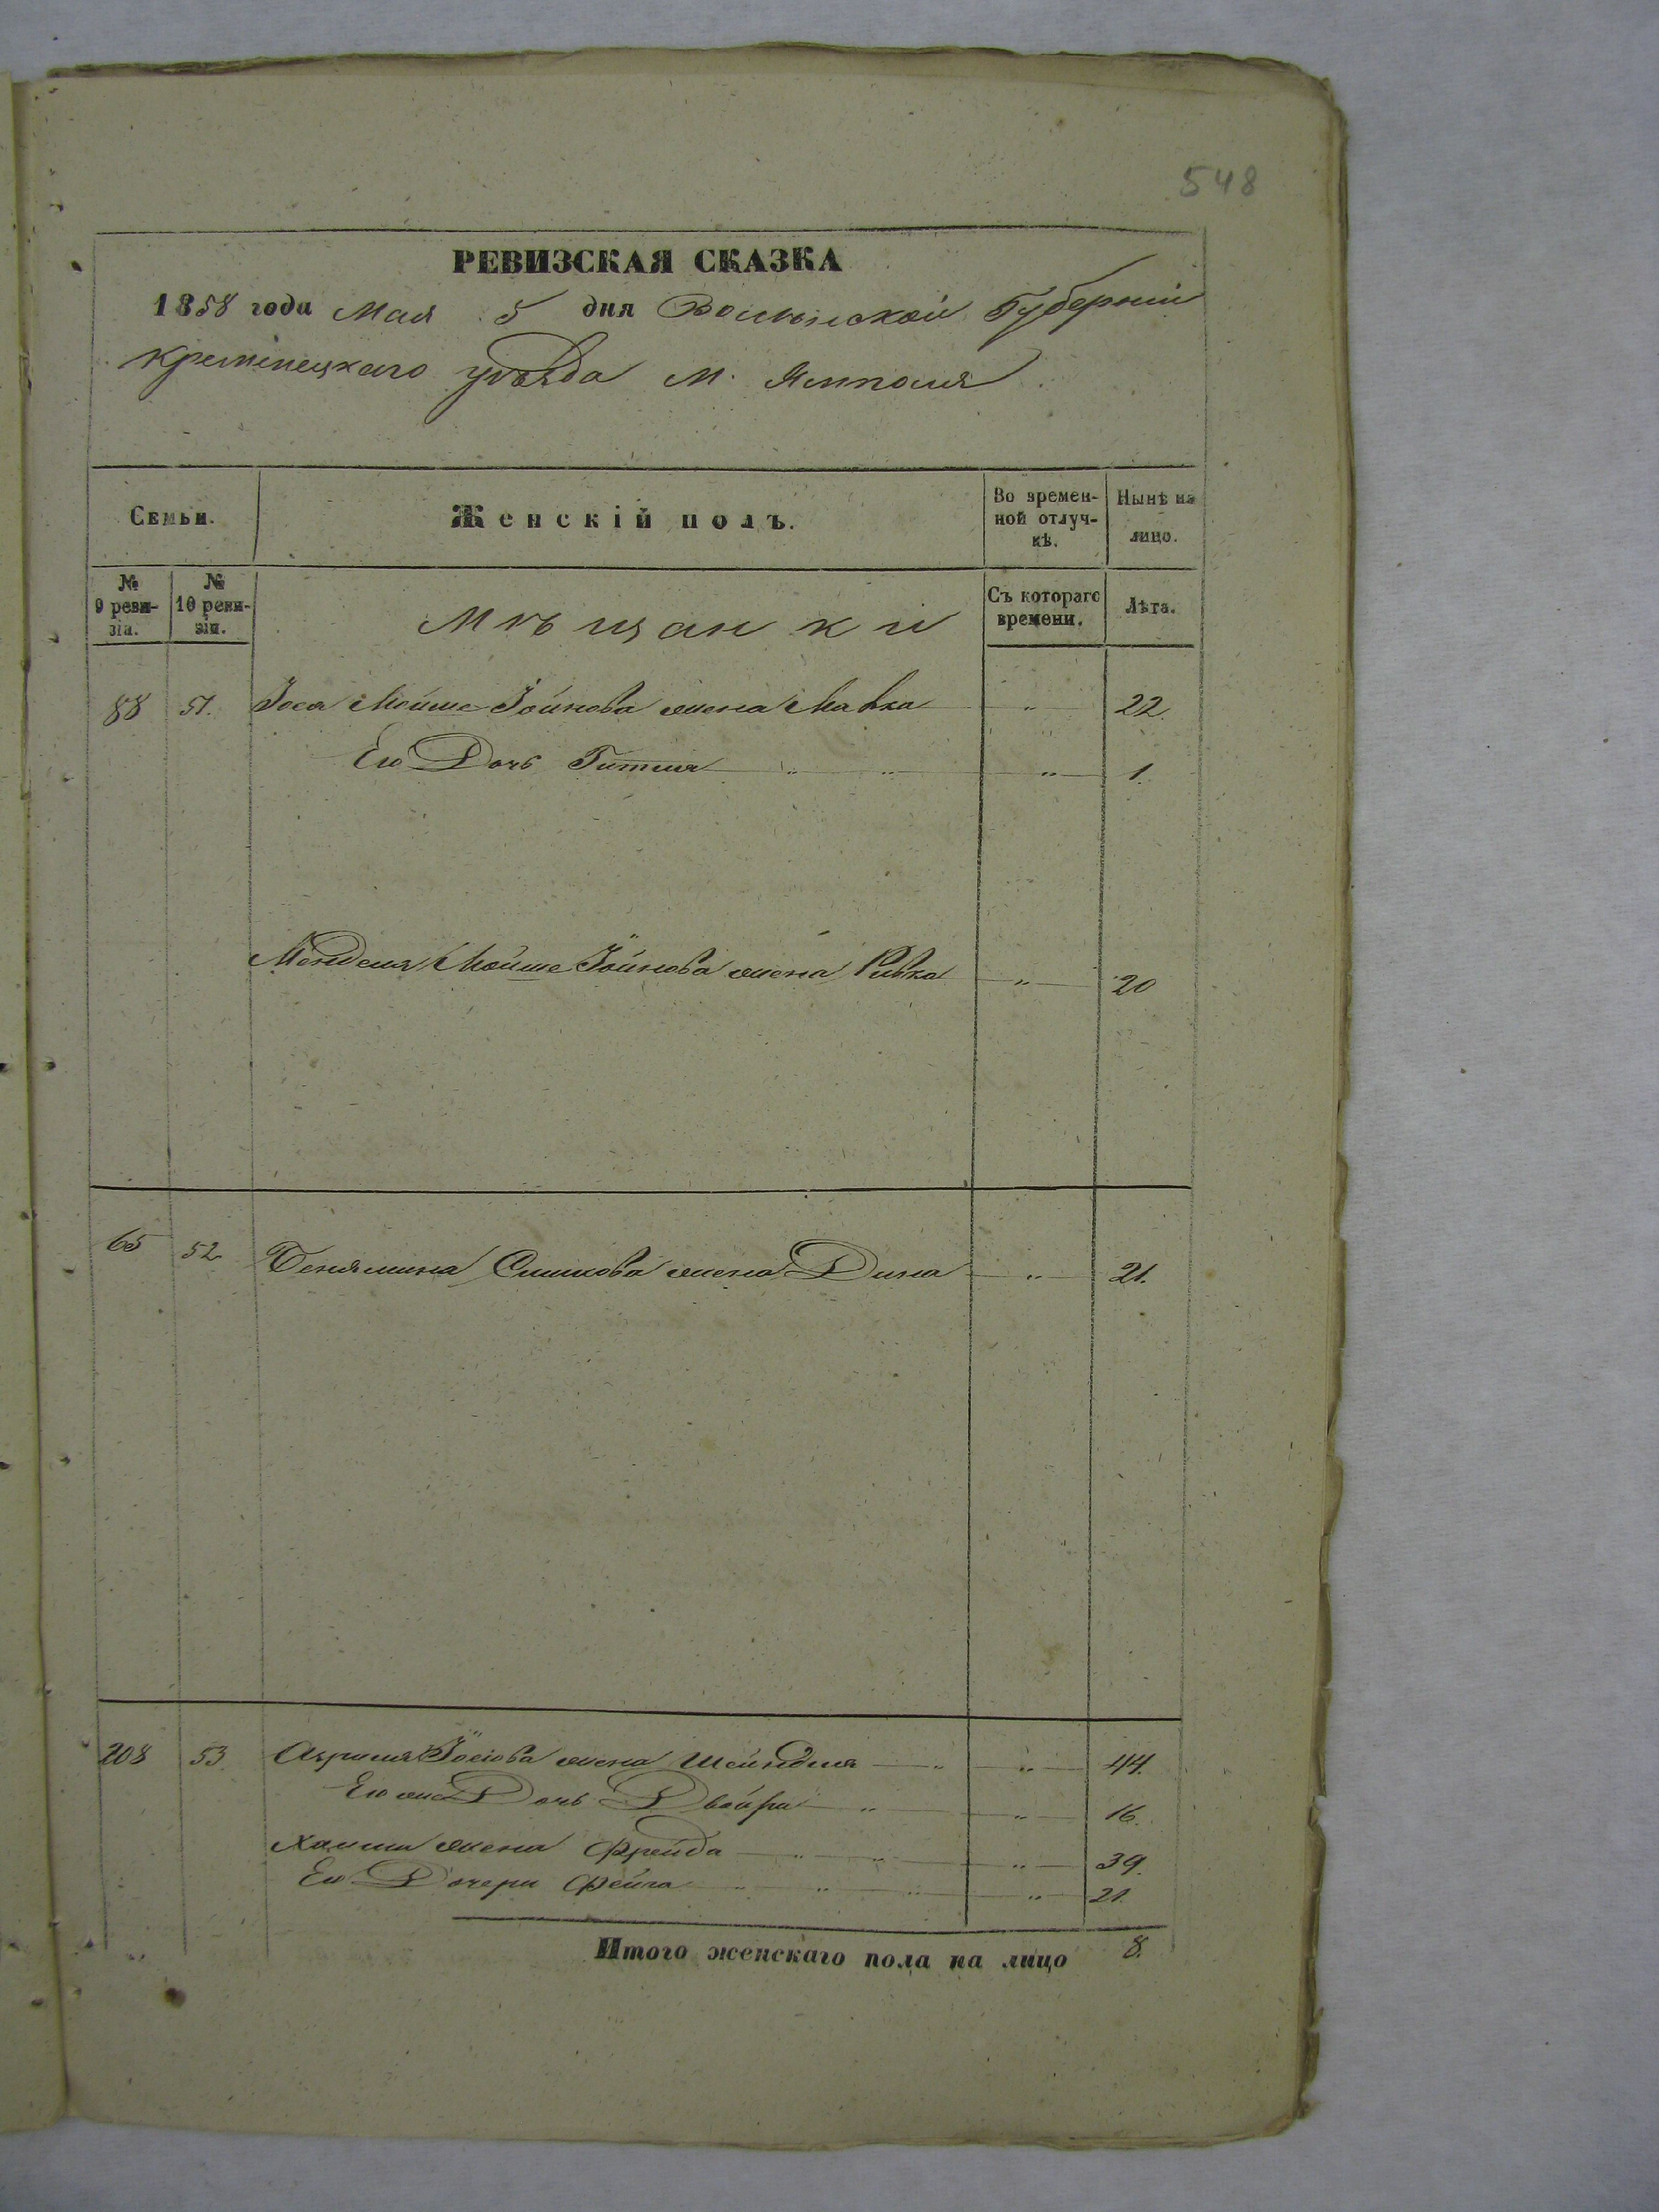 548
РЕВИЗСКАЯ СКАЗКА
1858 года Мая 5 дня Волынской Губерніи
Кременецкаго уѣзда м. Ямполя
Семьи. Женскій полъ. Во времен-ной отлуч-кѣ. Нынѣ на лицо.
№ 9 реви-зіи. № 10 реви-зіи. Мѣщанки Съ котораго времени. Лѣта.
88 51. Іося Мойше Іойнова жена Малка " 22.
Ею Дочь Гитля " " " 1.
Менделя Мойше Іойнова жена Ривка " 20
65 52 Беніамина Сишкова жена Дина " 21.
208 53. Іосіова жена Шейндля " " 44.
Ею же Дочь Двойра " " 16.
жена Фрейда " " " 39.
Ею Дочери Фейга " " " " 21.
Итого женскаго пола на лицо 8.